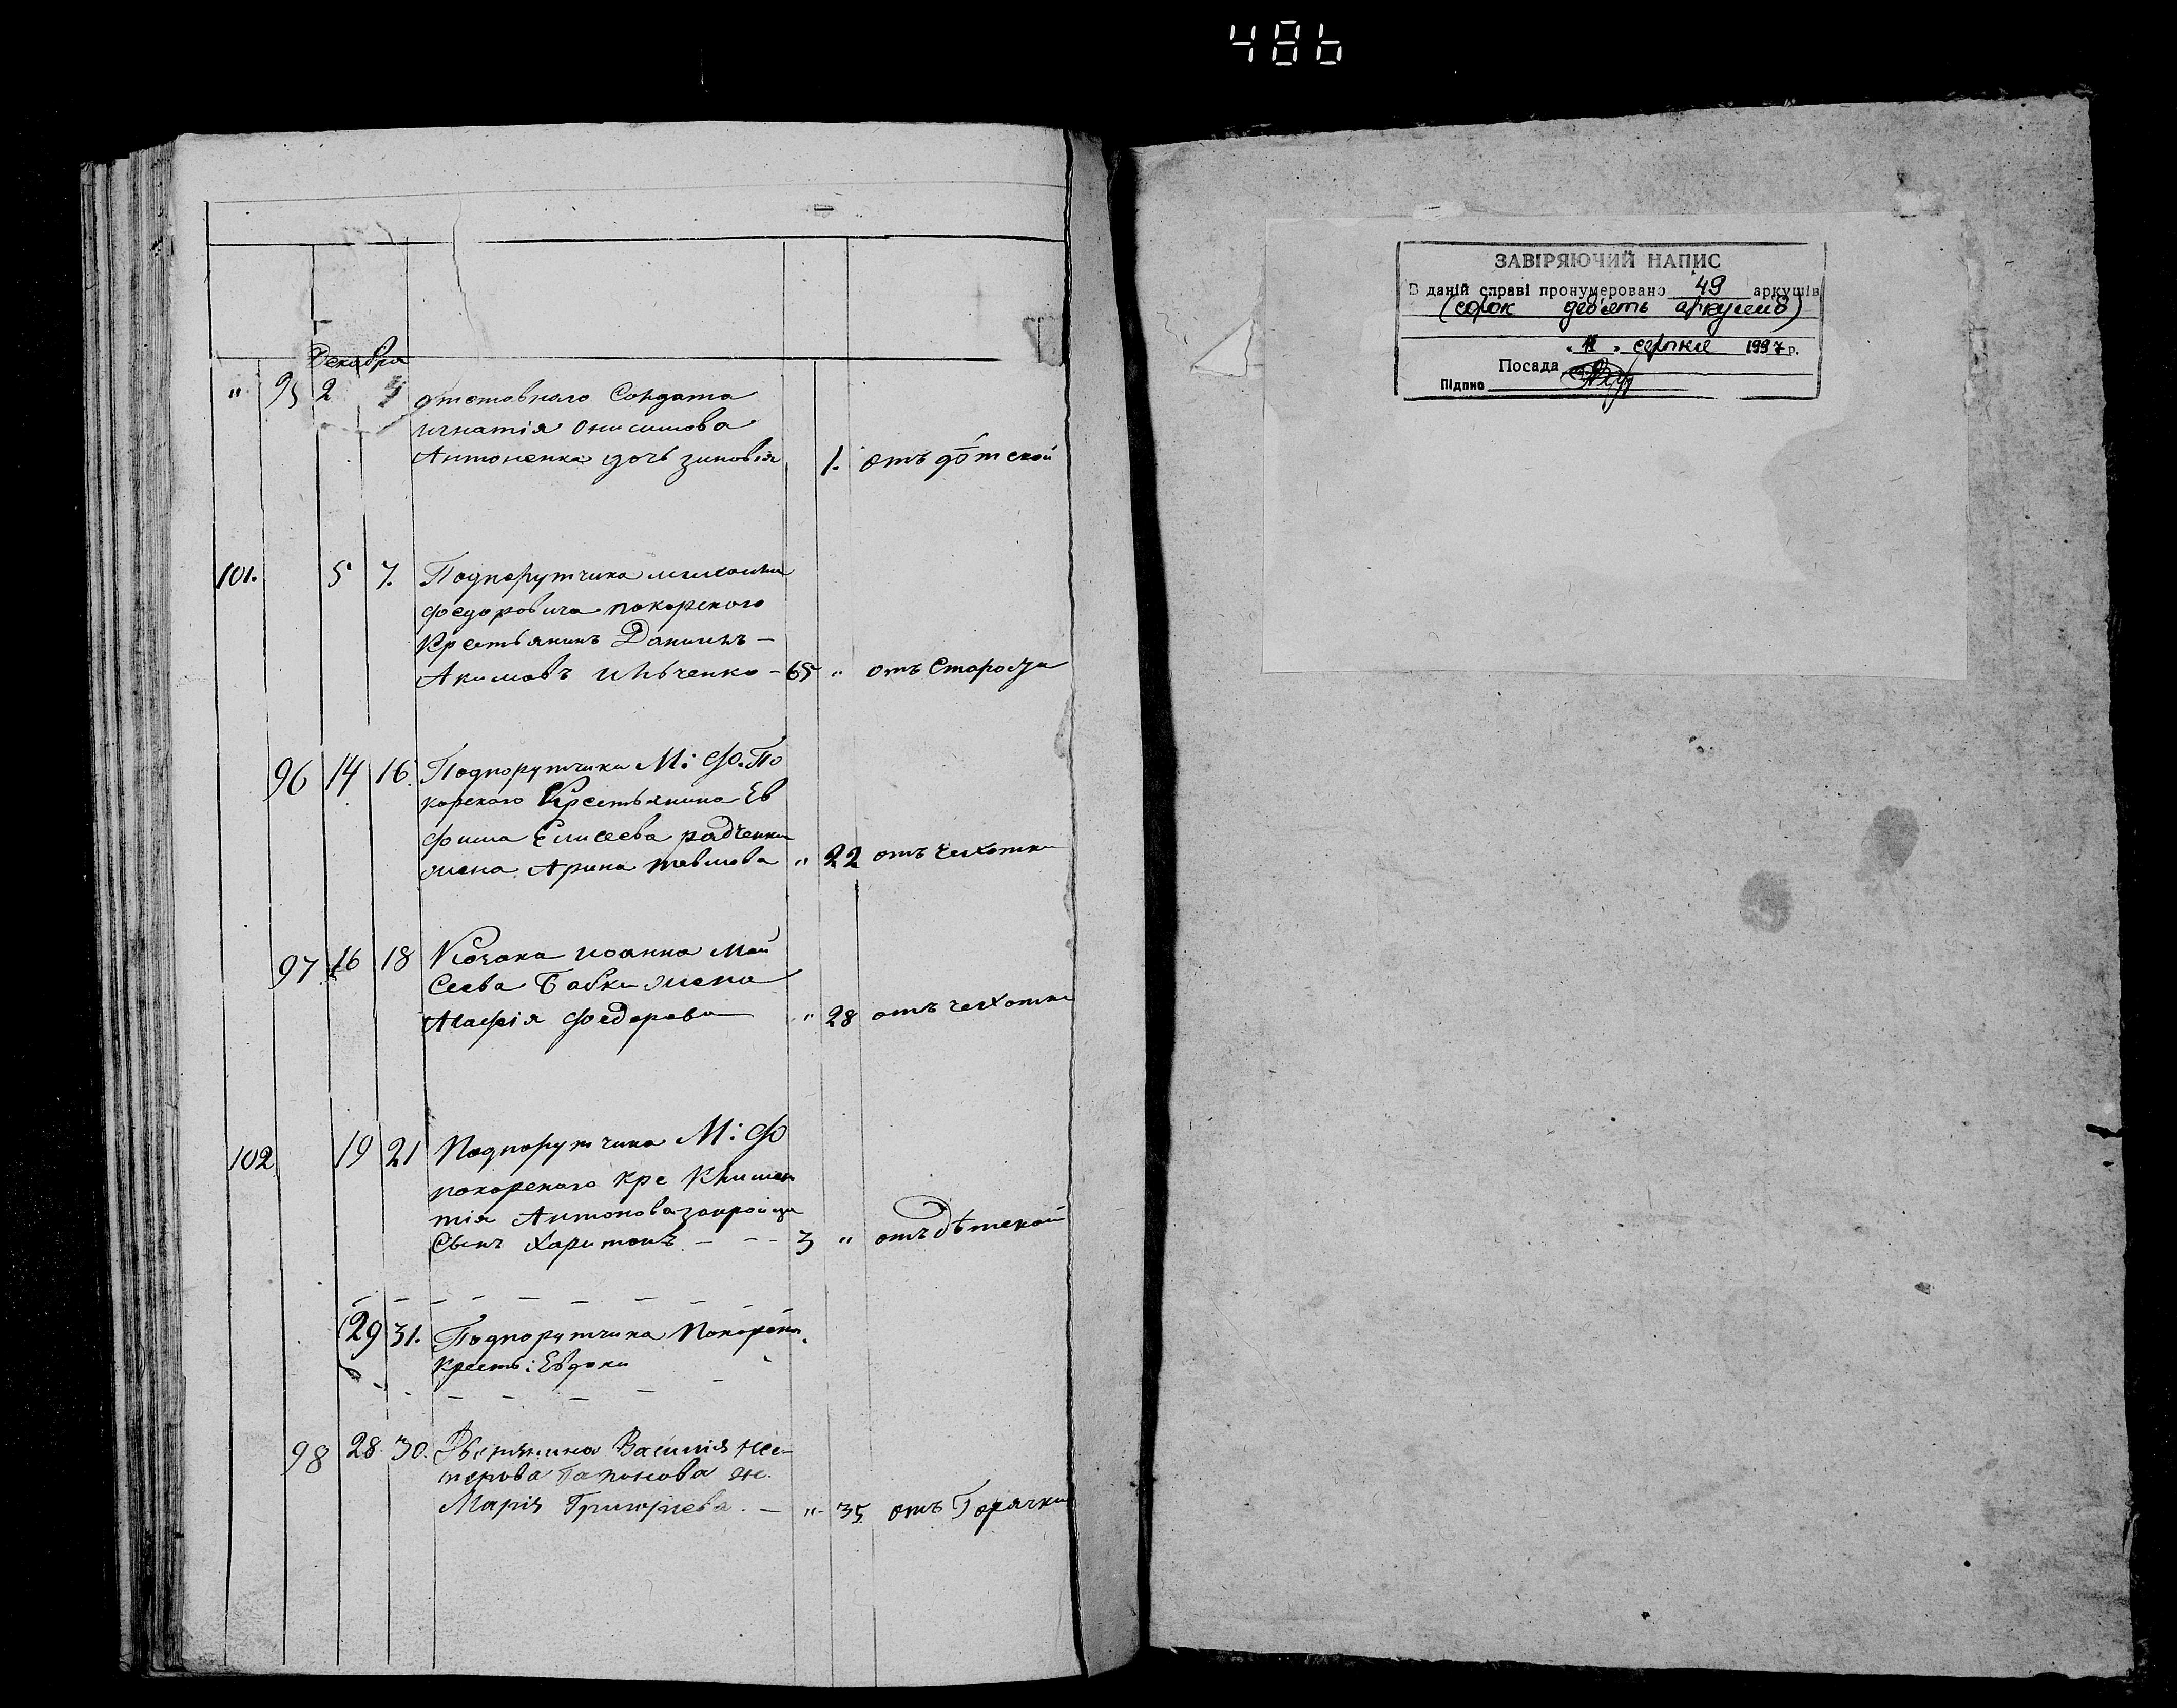 486
Декабря
" 95 2 4 отставнаго Солдата
игнатія Онисимова
Антоненка дочь зиновія 1. отъ дѣтской
101. 5 7. Подпорутчика михаила
федоровича покорского
Крестьянинъ Данiилъ —
Акимовъ Ильченко — 65 " отъ Старости
96 14 16. Подпорутчика М: Ф. По
корского Крестьянина Ев
фима Елисеева радченка
жена Арина " 22 отъ чехотки
97 16 18 Козака иоанна Мой
сеева Бабки жена
Агафія федорова " 28 отъ чехотки
102 19 21 Подпорутчика М: Ф
покорского кре Климен
тія Антонова
Сынъ Харитонъ — — — 3 " отъ дѣтской
29 31. Подпорутчика Покорско
Кресть: Евдоки
98 28 30. Василія Нес
терова ж.
Марія Григориева. — " 35 отъ Горячки
ЗАВІРЯЮЧИЙ НАПИС
В даній справі пронумеровано 49 аркушів
(сорок дев'ять аркушів)
" 11 " серпня 1997 р.
Посада
Підпис